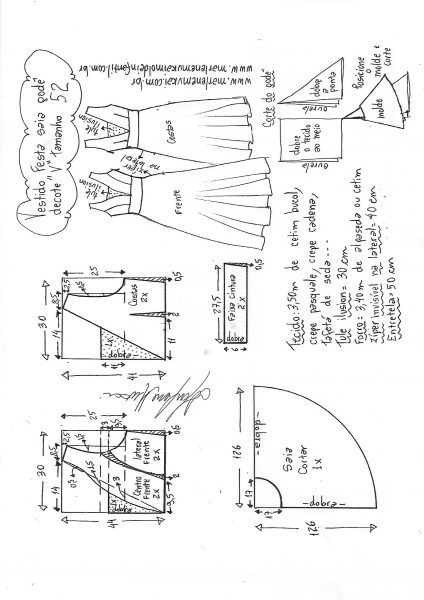 Vestido Festa saia godê
decote "V" Tamanho 52
www.marlenemukai.com.br
www.marlenemukaimoldeinfantil.com.br
tule
ilusion
Costas
tule
ilusion
zíper
na lateral
Frente
Corte do godê
dobre
o tecido
ao meio
ourela
dobre
a ponta
ourela
Posicione
o molde e
corte
molde
30
14
8,5
12,5
25
Costas
2x
dobra
44
11
2
0,5
27,5
0,5
Faixa Cintura
2x
dobra
6
Tecido: 3,50m de cetim bucol,
crepe pasquale, crepe cadena,
tafetá de seda...
Tule ilusion = 30 cm
Forro = 3,40m de alpaseda ou cetim
zíper invisível na lateral = 40 cm
Entretela = 50 cm
30
14
8,5
12,5
25
1,5
3
3
Centro
Frente
2x
lateral
Frente
2x
dobra
44
9,5
2
0,5
126
dobra
17
17
Saia
Cortar
1x
dobra
126